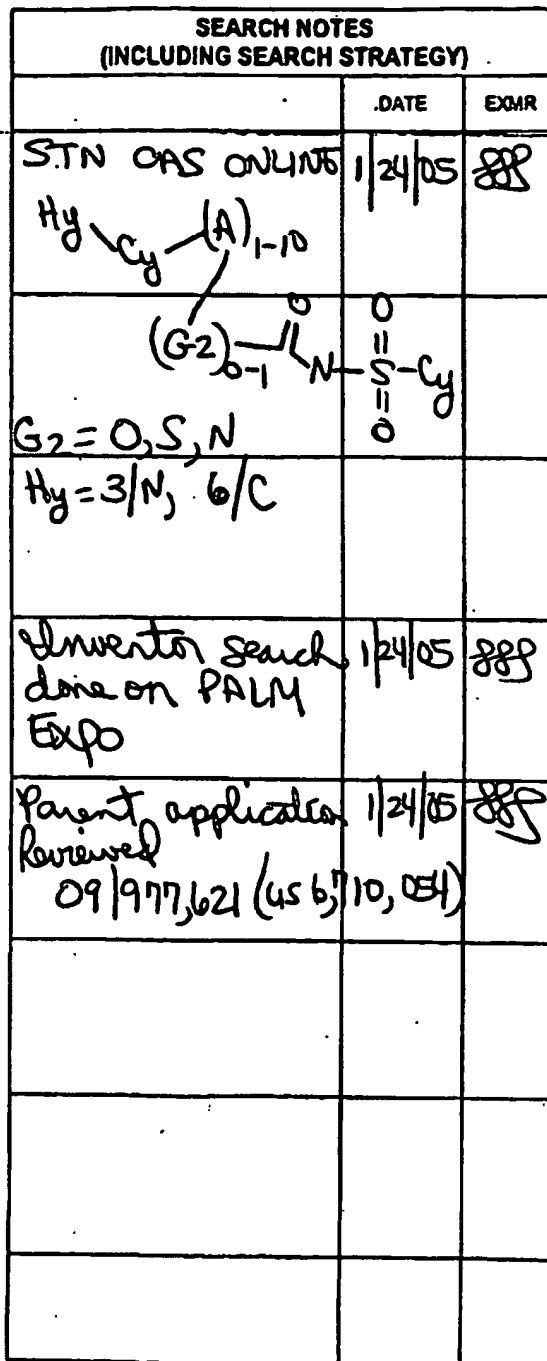 SEARCH NOTES
(INCLUDING SEARCH STRATEGY)
.DATE EXMR
STN CAS ONLINE 1/24/05
Hy Cy (A)1-10
(G2)0-1 O N O S O Cy
G2 = O, S, N
Hy = 3/N, 6/C
Inventor search 1/24/05
done on PALM
EXPO
Parent application 1/24/05
Reviewed
09/977,621 (US 6,710,054)